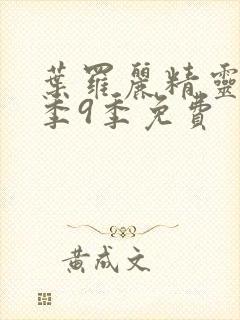 葉羅麗精靈
季9季免費
黃成文